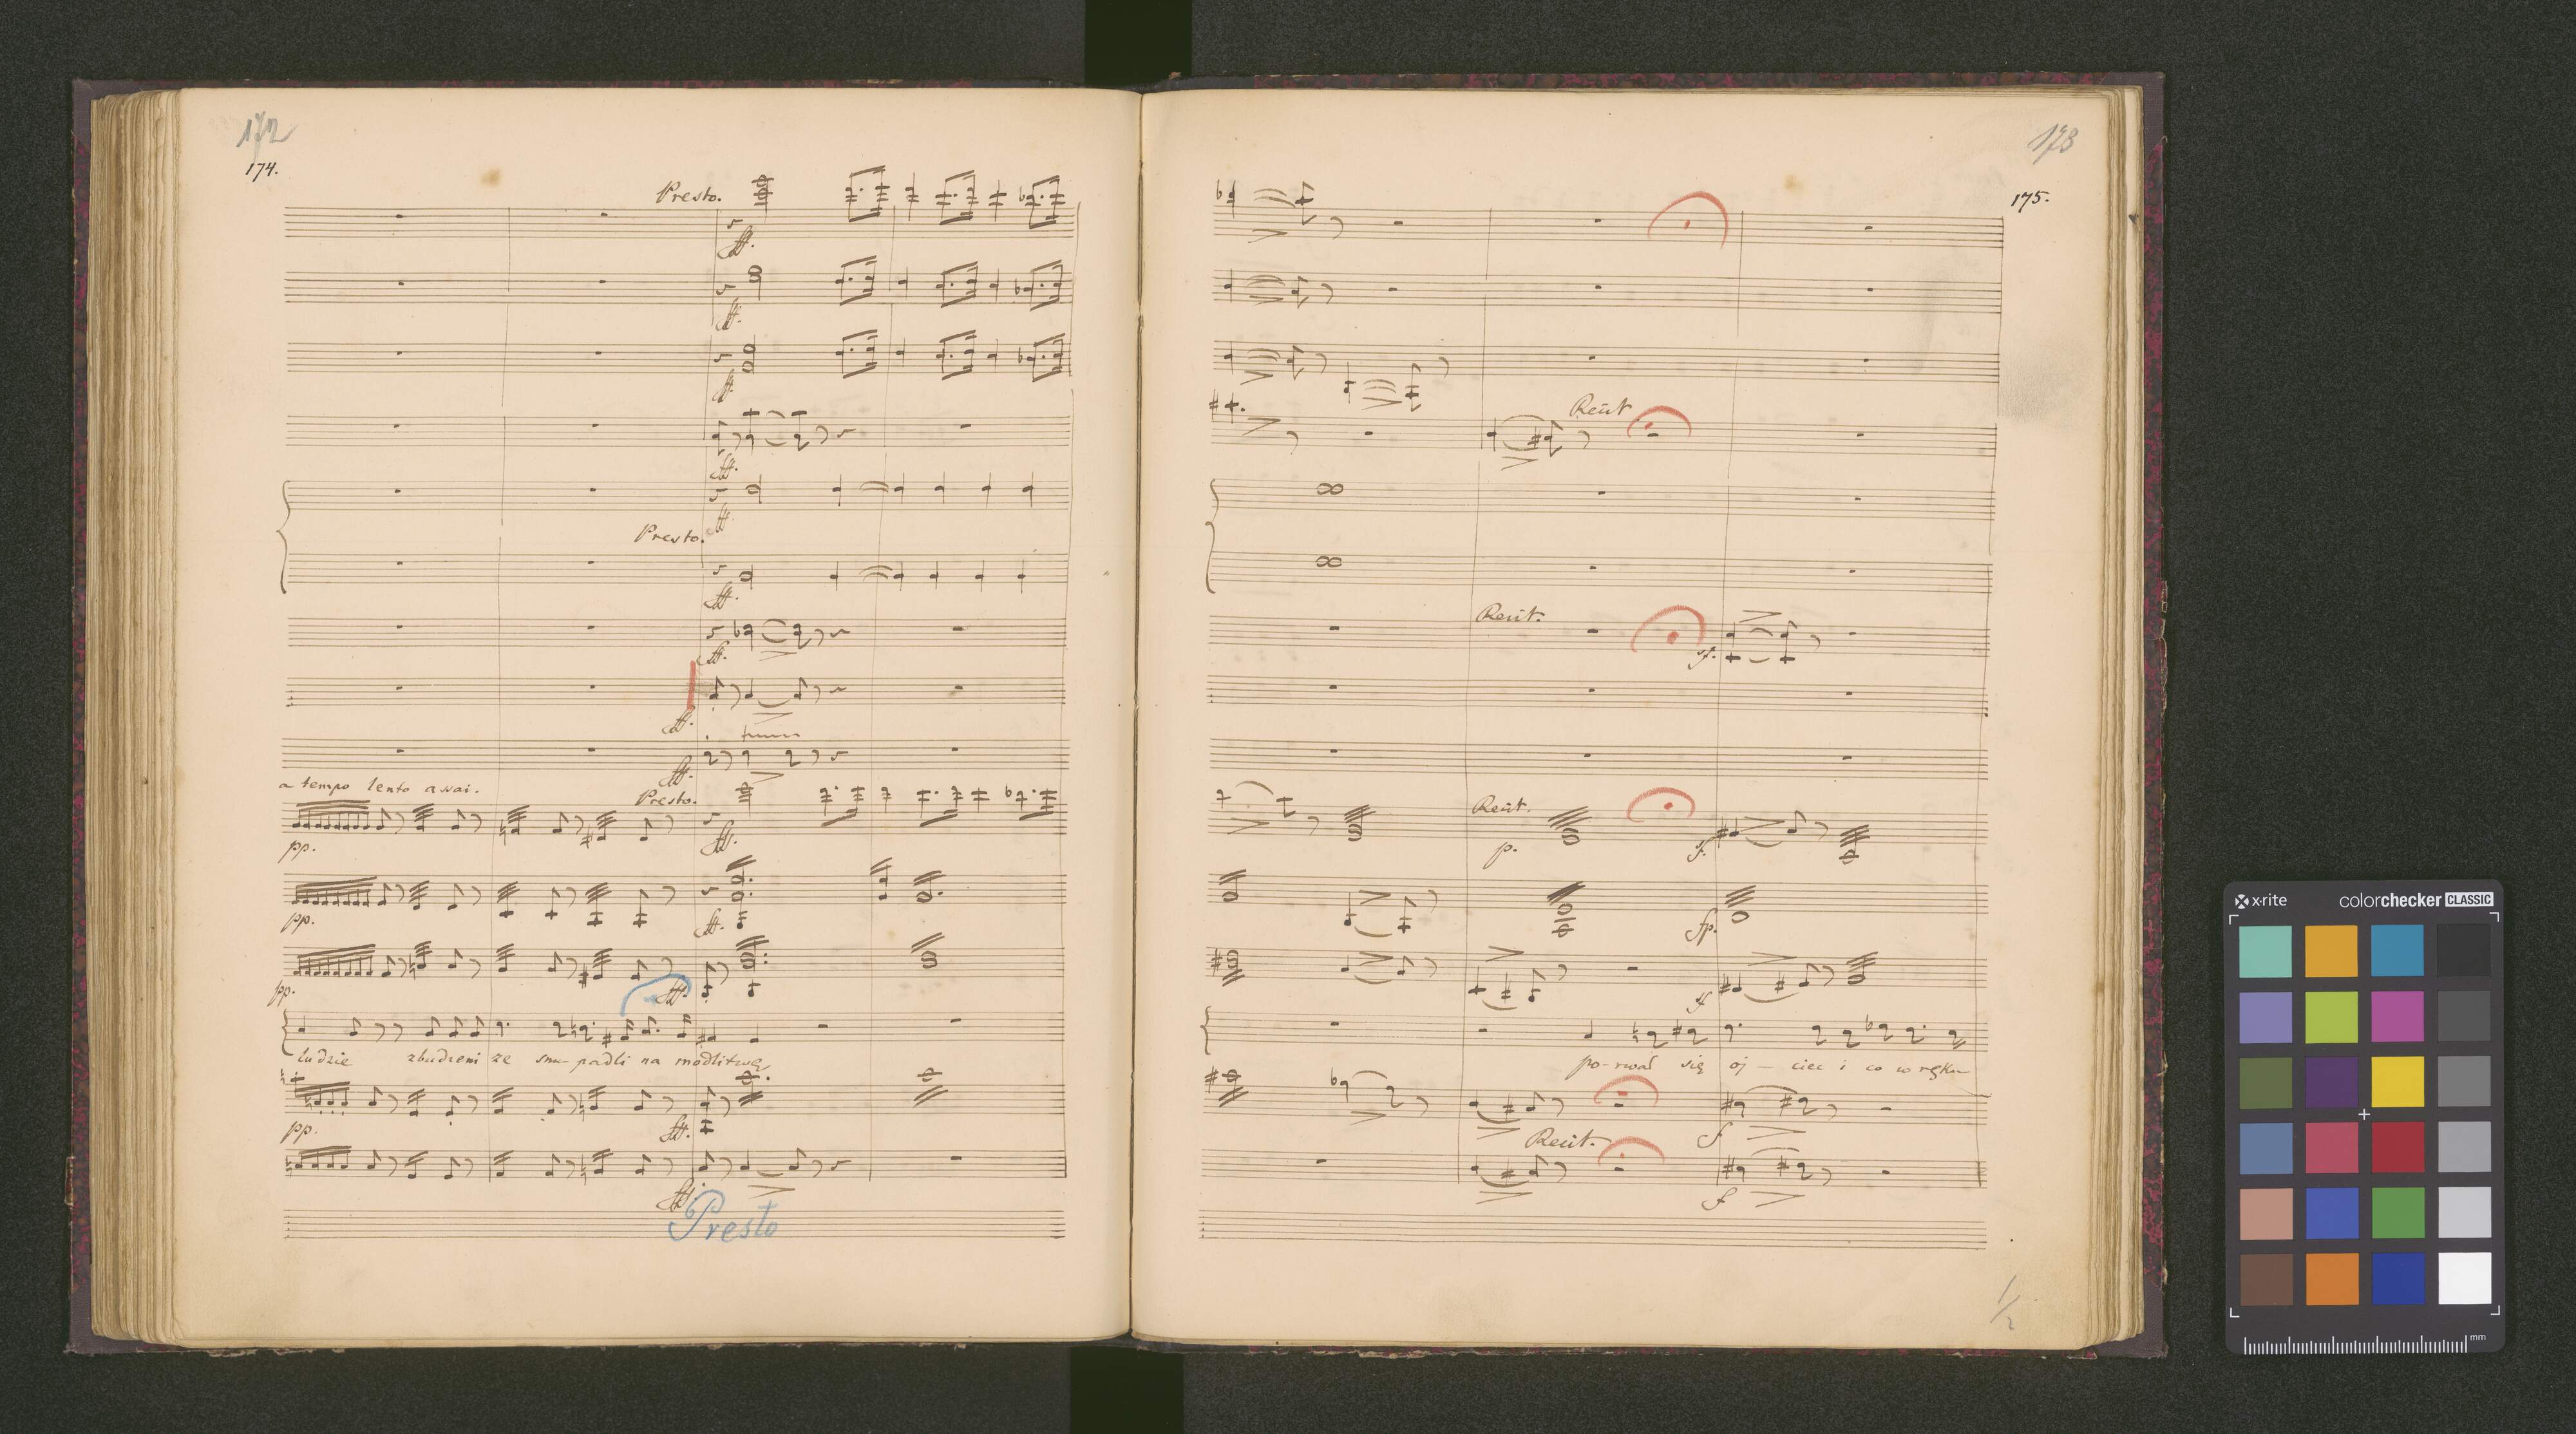 172
174.
Presto.
ff.
ff.
ff.
ff.
ff.
Presto.
ff.
ff.
ff.
ff.
a tempo lento assai.
Presto.
pp.
ff.
pp.
ff.
pp.
ff.
ludzie zbudzeni ze snu padli na modlitwę
pp.
ff.
ff.
Presto
173
175.
Recit
Recit.
sf.
Recit.
p.
f.
fp.
f
po-rwał się oj - ciec i co w ręku
f
Recit.
f
1/2
x-rite
colorchecker CLASSIC
mm